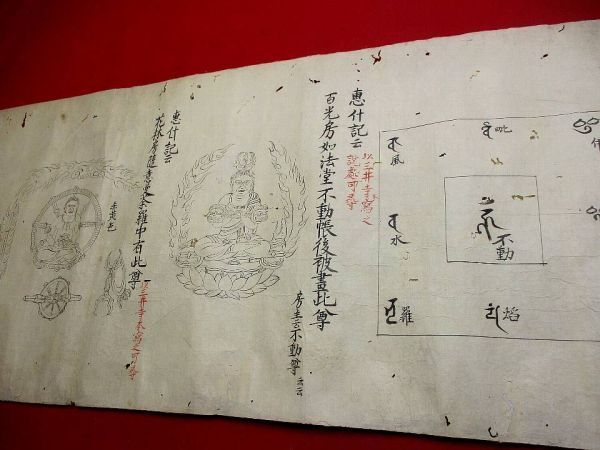 毗
伊
風
不動
水
羅
焰
惠什記云
以三井寺本寫之
説處可尋
百光房如法堂不動帳後被畫此尊
房主云不動尊云云
惠什記云
花林房随意曼荼羅中有此尊
以三井寺本寫之可尋
赤黄色